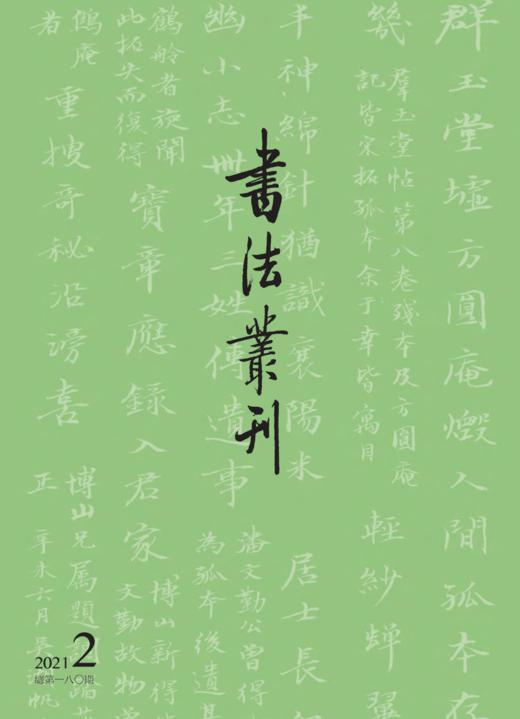 書法叢刊
群玉堂墟方圓庵燬人間孤本存
羣玉堂帖第八卷殘本及方圓庵
記皆宋拓孤本余于幸皆寓目
幾
輕紗蟬翼
千神綿針猶識襄陽米
居士長
幽小志卅年三姓傳遺事
潘文勤公曾得
為孤本後遺
鶴舲者旋聞
此拓失而復得
寶章應錄入君家
博山新得
文勤故物
鶴庵
者
重搜奇秘沿滂喜
博山兄属題
正
辛未六月
2021 2
總第一八〇期